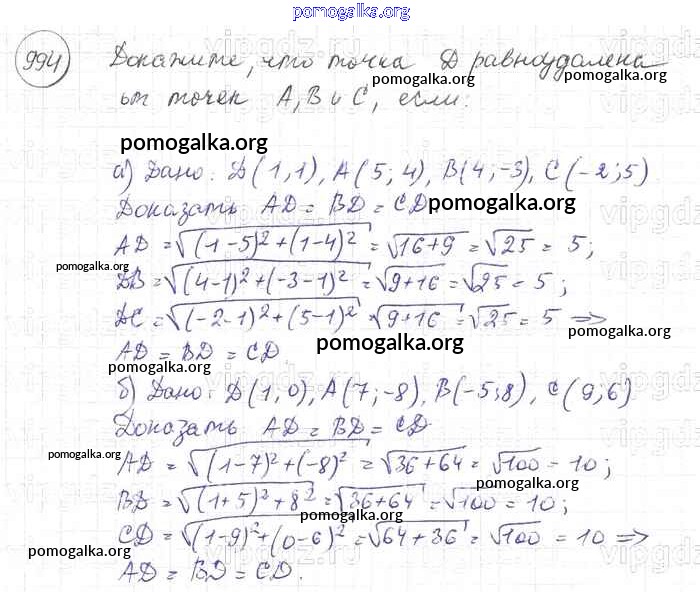 pomogalka.org
994) Докажите, что точка D равноудалена
pomogalka.org
от точек A, B и C, если:
pomogalka.org
а) Дано: D(1,1), A(5;4), B(4;-3), C(-2;5)
Доказать: AD = BD = CD. pomogalka.org
AD = √((1-5)²+(1-4)²) = √(16+9) = √25 = 5;
pomogalka.org
DB = √((4-1)²+(-3-1)²) = √(9+16) = √25 = 5;
DC = √((-2-1)²+(5-1)²) = √(9+16) = √25 = 5 =>
pomogalka.org
AD = BD = CD pomogalka.org
pomogalka.org
б) Дано: D(1,0), A(7;-8), B(-5;8), C(9,6)
Доказать: AD = BD = CD
pomogalka.org
AD = √((1-7)²+(-8)²) = √(36+64) = √100 = 10;
BD = √((1+5)²+8²) = √(36+64) = √100 = 10;
pomogalka.org
CD = √((1-9)²+(0-6)²) = √(64+36) = √100 = 10 =>
pomogalka.org pomogalka.org
AD = BD = CD.